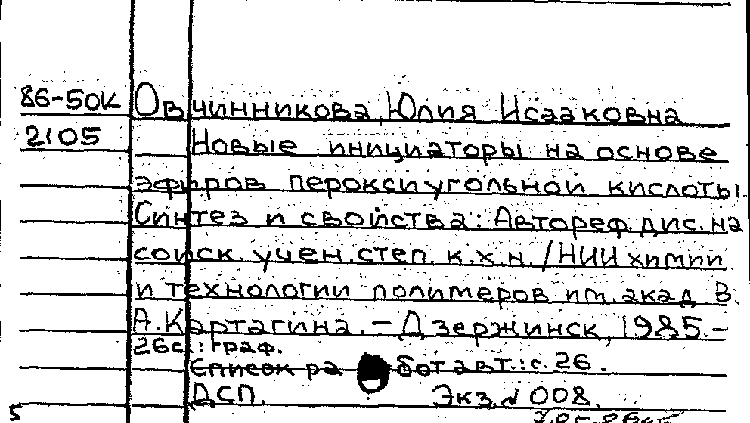 86-50К Овчинникова, Юлия Исааковна
2105 Новые инициаторы на основе
эфиров пероксиугольной кислоты.
Синтез и свойства: Автореф. дис. на
соиск. учен. степ. к.х.н. /НИИ химии
и технологии полимеров им. акад. В.
А. Картагина. – Дзержинск, 1985.–
26с.: граф.
Список работ авт.: с. 26.
ДСП. Экз. № 008.
5